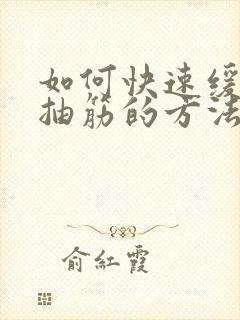 如何快速缓
抽筋的方法
俞红霞